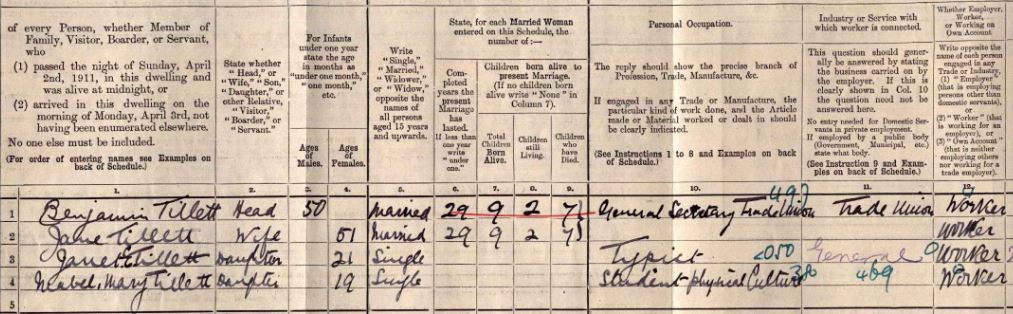 of every Person, whether Member of
Family, Visitor, Boarder, or Servant,
who
(1) passed the night of Sunday, April
2nd, 1911, in this dwelling and
was alive at midnight, or
(2) arrived in this dwelling on the
morning of Monday, April 3rd, not
having been enumerated elsewhere.
No one else must be included.
(For order of entering names see Examples on
back of Schedule.)
State whether
"Head," or
"Wife," "Son,"
"Daughter," or
other Relative,
"Visitor,"
"Boarder," or
"Servant."
For Infants
under one year
state the age
in months as
"under one month,"
"one month,"
etc.
Ages
of
Males.
Ages
of
Females.
Write
"Single,"
"Married,"
"Widower,"
or "Widow,"
opposite the
names of
all persons
aged 15 years
and upwards.
State, for each Married Woman
entered on this Schedule, the
number of:—
Com-
pleted
years the
present
Marriage
has
lasted.
If less than
one year
write
"under
one."
Children born alive to
present Marriage.
(If no children born
alive write "None" in
Column 7).
Total
Children
Born
Alive.
Children
still
Living.
Children
who
have
Died.
Personal Occupation.
The reply should show the precise branch of
Profession, Trade, Manufacture, &c.
If engaged in any Trade or Manufacture, the
particular kind of work done, and the Article
made or Material worked or dealt in should
be clearly indicated.
(See Instructions 1 to 8 and Examples on back
of Schedule.)
Industry or Service with
which worker is connected.
This question should gener-
ally be answered by stating
the business carried on by
the employer. If this is
clearly shown in Col. 10
the question need not be
answered here.
No entry needed for Domestic Ser-
vants in private employment.
If employed by a public body
(Government, Municipal, etc.)
state what body.
(See Instruction 9 and Exam-
ples on back of Schedule.)
Whether Employer,
Worker,
or Working on
Own Account
Write opposite the
name of each person
engaged in any
Trade or Industry,
(1) "Employer"
(that is employing
persons other than
domestic servants),
or
(2) "Worker" (that
is working for an
employer), or
(3) "Own Account"
(that is neither
employing others
nor working for a
trade employer).
1. 2. 3. 4. 5. 6. 7. 8. 9. 10. 11. 12.
1 Benjamin Tillett Head 50 Married 29 9 2 7 General Secretary Trade Union Trade Union Worker
2 Jane Tillett Wife 51 Married 29 9 2 7 Worker
3 Janet Tillett Daughter 21 Single Typist 050 General Worker
4 Mabel Mary Tillett Daughter 19 Single Student physical Culture 469 Worker
5